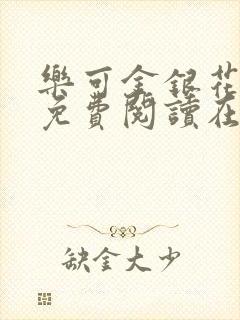 樂可金銀花
免費閱讀在
缺金大少